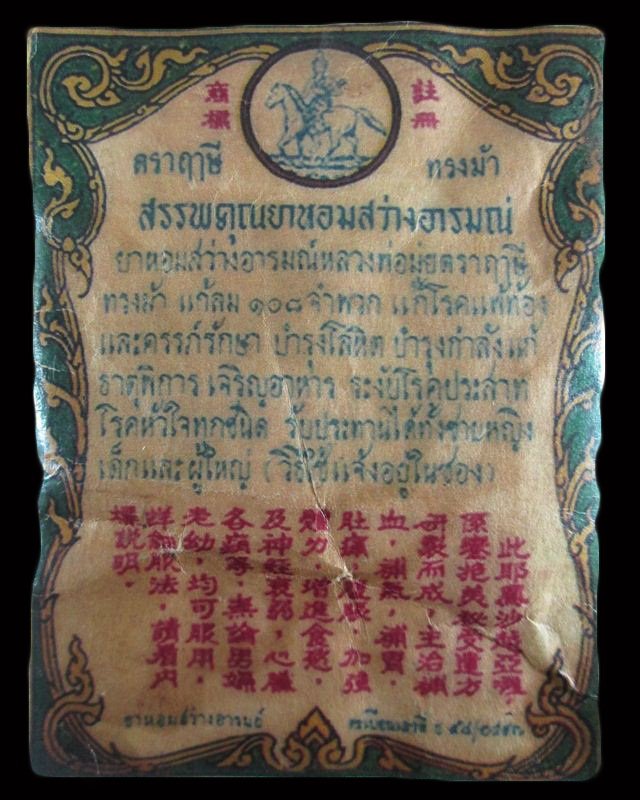 註冊
商標
ตราฤๅษี ทรงม้า
สรรพคุณยาหอมสว่างอารมณ์
ยาหอมสว่างอารมณ์หลวงพ่อมุ่ยตราฤๅษี
ทรงม้า แก้ลม ๑๐๘ จำพวก แก้โรคแพ้ท้อง
และครรภ์รักษา บำรุงโลหิต บำรุงกำลัง แก้
ธาตุพิการ เจริญอาหาร ระงับโรคประสาท
โรคหัวใจทุกชนิด รับประทานได้ทั้งชายหญิง
เด็กและผู้ใหญ่ (วิธีใช้แจ้งอยู่ในซอง)
此耶鳳沙越亞囉，
原鑾抱美秘受進方
研製而成，主治補
血，補氣，補胃，
肚痛，肚脹，加强
體力，增進食慾，
及神經衰弱，心臟
各病等，無論男婦
老幼，均可服用，
詳細服法，請看內
場說明。
ยาหอมสว่างอารมณ์ ทะเบียนเลขที่